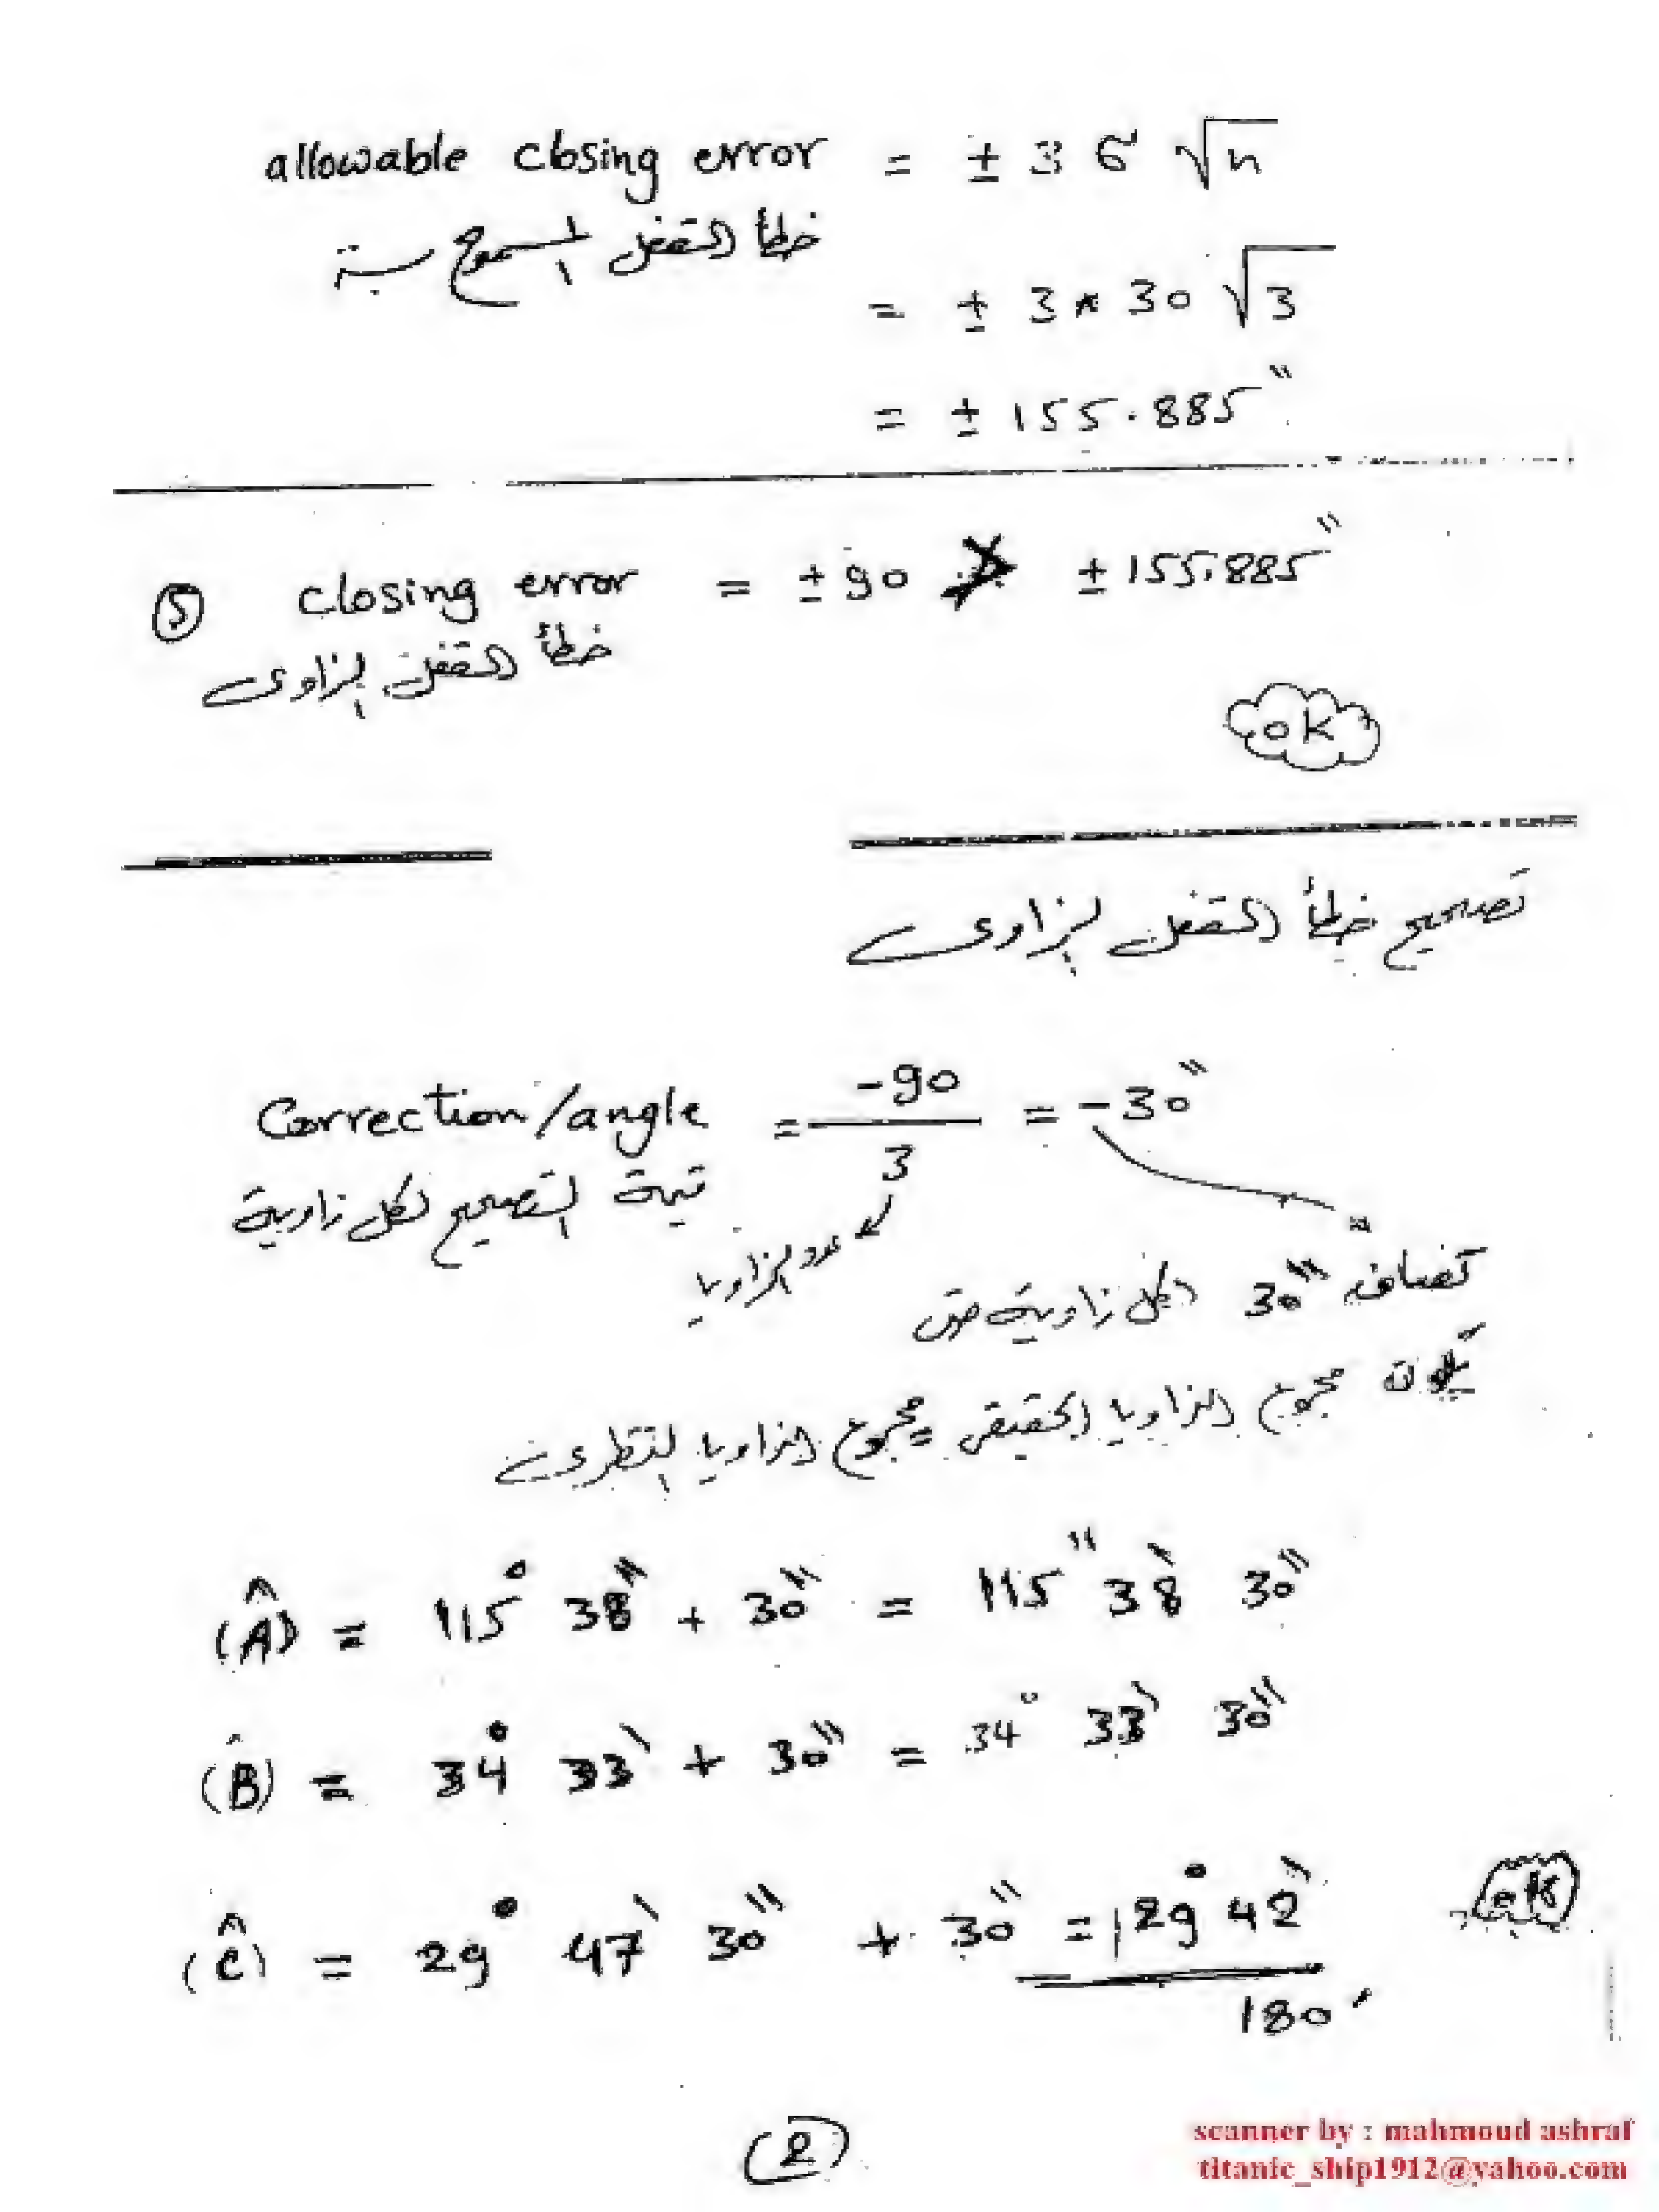 allowable closing error = ± 3 σ √n
خطأ القفل المسموح به
= ± 3 * 30 √3
= ± 155.885"
⑤ closing error = ± 90 ≯ ± 155.885"
خطأ القفل الزاوى
ok
تصحيح خطأ القفل الزاوى
Correction/angle = -90 / 3 = -30"
قيمة التصحيح لكل زاوية
عدد الزوايا
تضاف 30" لكل زاوية حتى
يكون مجموع الزوايا الحقيقى = مجموع الزوايا النظرى
(Â) = 115° 38" + 30" = 115" 38' 30"
(B̂) = 34° 33' + 30" = 34° 33' 30"
(Ĉ) = 29° 47' 30" + 30" = 29° 42'
ok
180'
(2)
scanner by : mahmoud ashraf
titanic_ship1912@yahoo.com